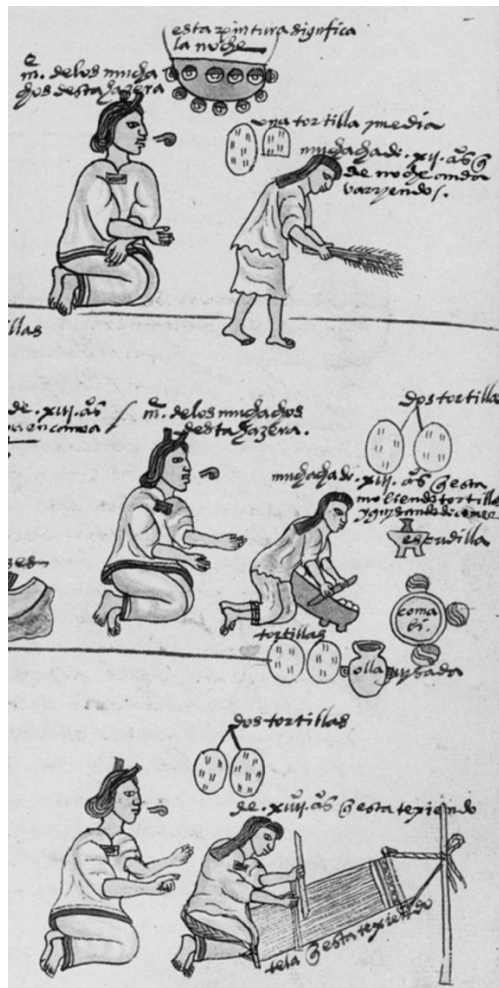 esta pintura significa
la noche
m. de los mucha
chos desta hazera
una tortilla y media
muchacha de .xij. aos q
de noche anda
varriendo.
illas
de .xiij. aos
m. de los muchachos
desta hazera.
dos tortillas
muchacha de .xiij. aos q esta
moliendo tortillas
y guisando de comer
escudilla
comali.
tortillas
olla guisada
dos tortillas
de .xiiij. aos q esta texiendo
tela q esta texiendo